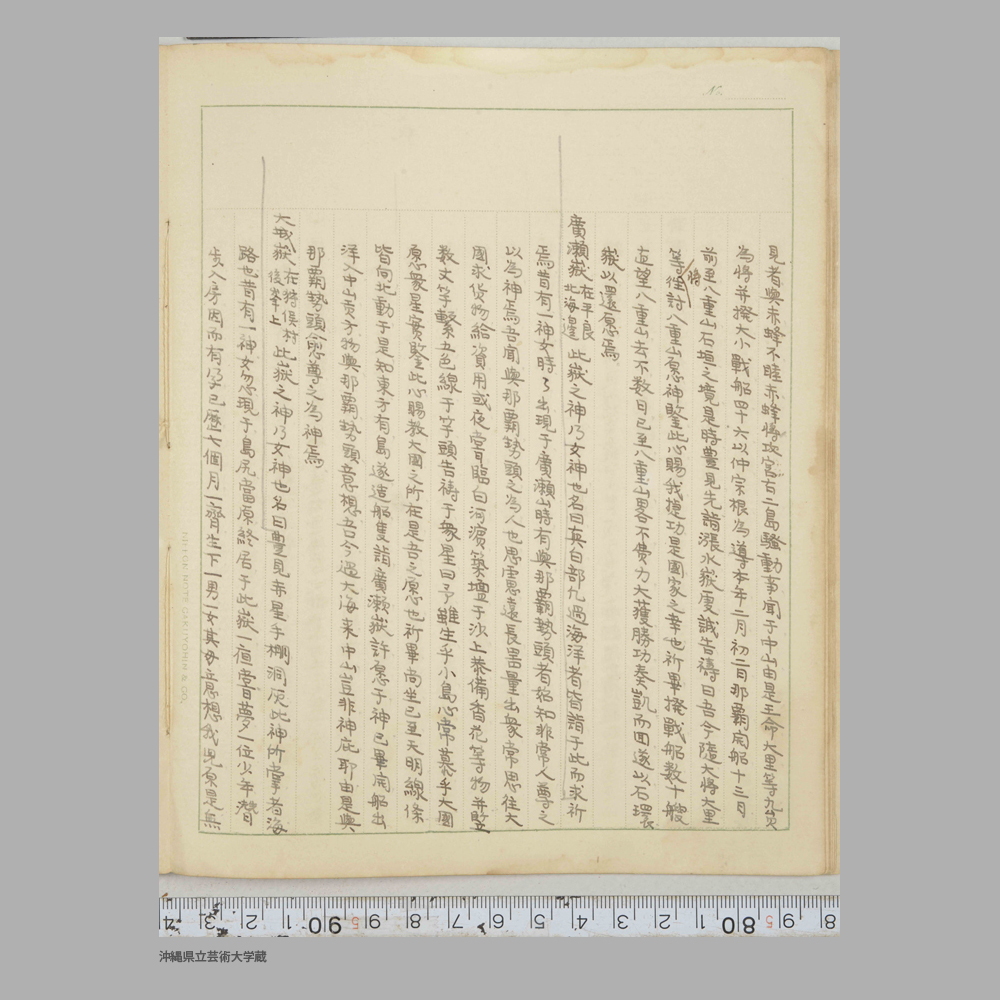 見者與赤蜂不睦赤蜂將攻宮古二島騷動事聞于中山由是王命大里等九員
為將并撥大小戰船四十六以仲宗根為導本年二月初二日那霸開船十三日
前至八重山石垣之境是時豊見先詣漲水嶽虔誠告禱曰吾今隨大將大里
等將往討八重山愿神鑒此心賜我捷功是國家之幸也祈畢撥戰船数十艘
直望八重山去不数日已至八重山界不費力大獲勝功奏凱而囬遂以石環
嶽以還愿焉
廣瀨嶽在平良北海邊 此嶽之神乃女神也名曰真白部九過海洋者皆詣于此而求祈
焉昔有一神女時々出現于廣瀨山時有與那霸勢頭者始知非常人尊之
以為神焉吾聞與那霸勢頭之為人也思慮遠長器量出衆常思往大
國求貨物給資用或夜嘗臨白河濱築壇于沙上恭備香花等物并竪
数丈竿繫五色線于竿頭告禱于衆星曰予雖生乎小島心常慕乎大國
愿衆星實鑒此心賜教大國之所在是吾之愿也祈畢尚坐已至天明線條
皆向北動于是知東方有島遂造船隻詣廣瀨嶽許愿于神已畢開船出
洋入中山貢方物與那霸勢頭意想吾今過大海来中山豈非神庇耶由是與
那霸勢頭愈尊之為神焉
大城嶽在狩俣村後峯上 此嶽之神乃女神也名曰豊見赤星手棚洞灰此神所掌者海
路也昔有一神女忽現于島尻當原終居于此嶽一宿嘗夢一位少年潛
步入房因而有孕已歷七個月一齊生下一男一女其母意想我兒原是無
NIPPON NOTE GAKUYOHIN & CO.
№
4 3 2 1 90 5 9 8 7 6 5 4 3 2 1 80 5 9 8
沖縄県立芸術大学蔵